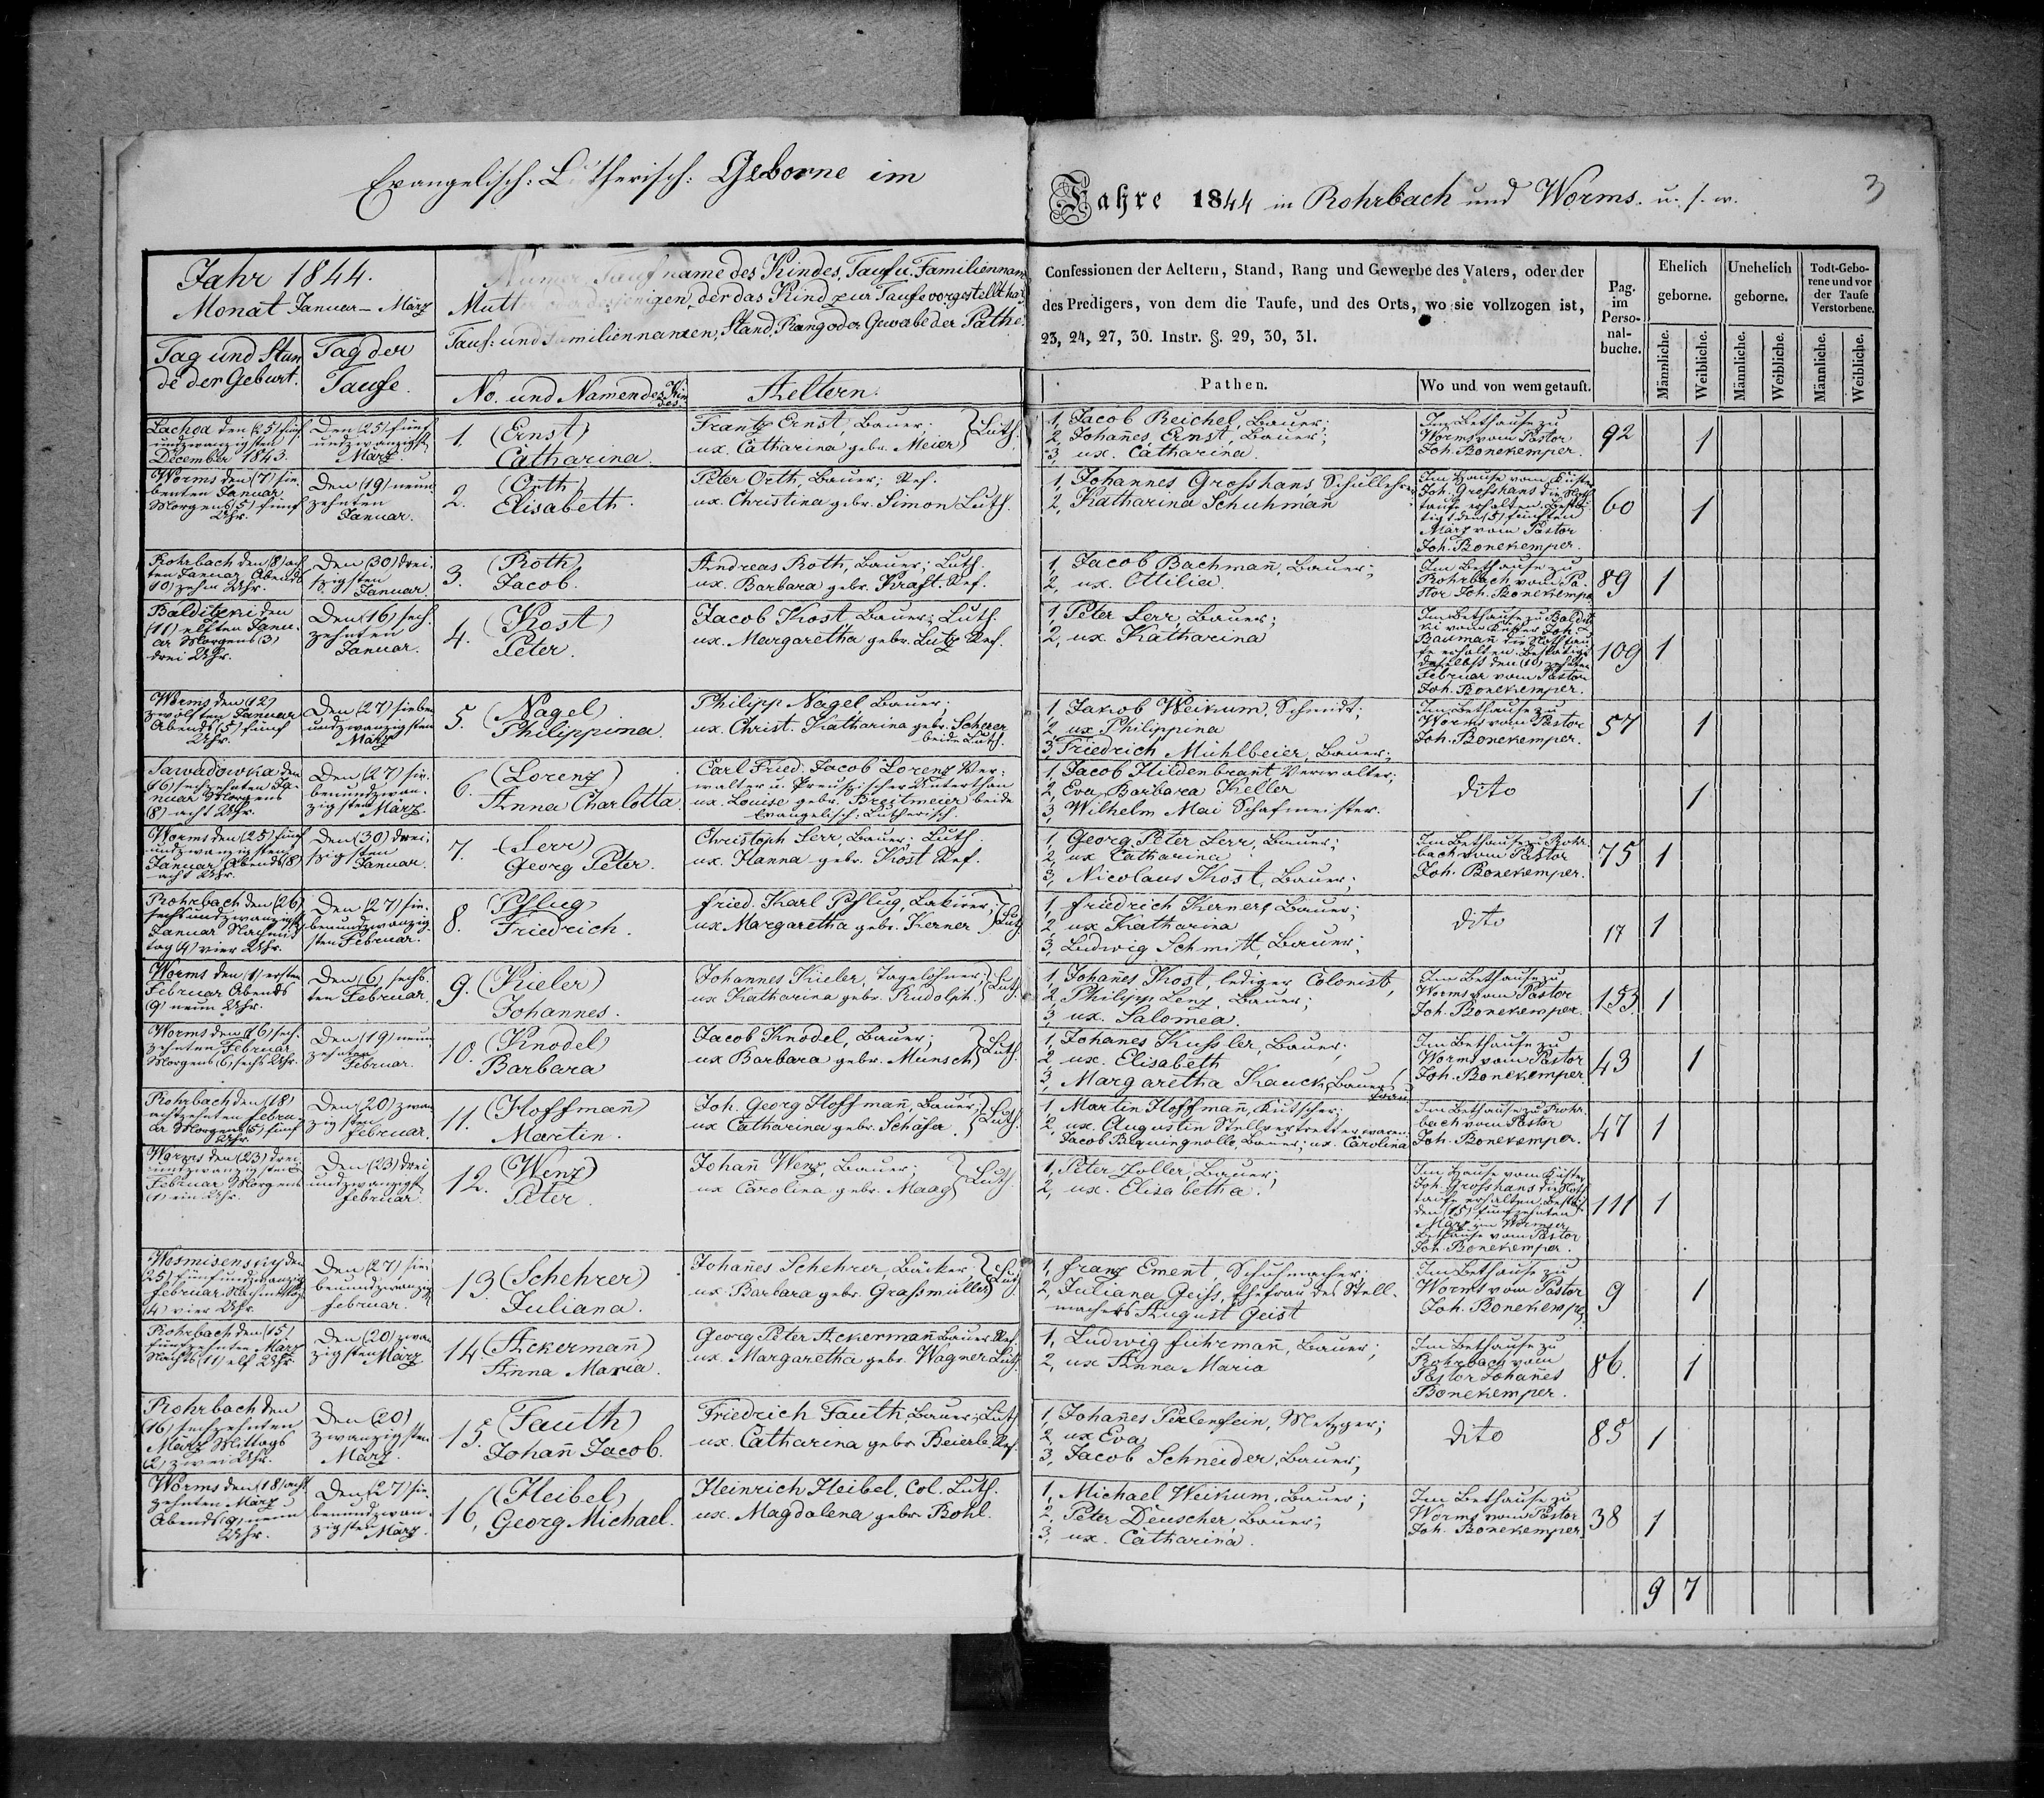 Evangelisch: Lutherisch: Geborne im
Jahre 1844 in Rohrbach und Worms. u. s. w.
3
Jahr 1844.
Monat Januar – März
Tag und Stun
de der Geburt.
Tag der
Taufe.
Taufname des Kindes, Tauf u. Familiennam
Mutt desjenigen, der das Kind zur Taufe vorgestellt hat
Tauf: und Familiennamen, Stand, Rang oder Gewabe der Pathe
No. und Namen des Kin
des
Aeltern.
Confessionen der Aeltern, Stand, Rang und Gewerbe des Vaters, oder der
des Predigers, von dem die Taufe, und des Orts, wo sie vollzogen ist,
23, 24, 27, 30. Instr. §. 29, 30, 31.
Pathen.
Wo und von wem getauft.
Pag.
im
Perso-
nal-
buche.
Ehelich
geborne.
Unehelich
geborne.
Todt-Gebo-
rene und vor
der Taufe
Verstorbene.
Männliche.
Weibliche.
Männliche.
Weibliche.
Männliche.
Weibliche.
den (25) fünf
undzwanzigsten
December 1843.
Den (25) fünf
undzwanzigst
März.
1. (Ernst)
Catharina.
Frantz Ernst Bauer;
ux. Catharina gebr. Meier
Luth.
1, Jacob Reichel, Bauer;
2, Johan̄es Ernst, Bauer;
3, ux. Catharina.
Im Bethause zu
Worms vom Pastor
Joh. Bonekemper.
92
1
Worms den (7) sie
benten Januar
Morgens (5) fünf
Uhr.
Den (19) neun
zehnten
Januar.
2. (Orth)
Elisabeth.
Peter Orth, Bauer; Ref.
ux. Christina gebr. Simon Luth.
1, Johannes Grosshans, Schullehrer
2, Katharina Schuhman̄
Im Hause vom Küster
Joh. Grosshans die Noth
taufe erhalten. Bestä
tigt den (5) fünften
März vom Pastor
Joh. Bonekemper.
60
1
Rohrbach den (8) ach
ten Januar Abends
(10) zehn Uhr.
Den (30) drei
szigsten
Januar.
3. (Roth)
Jacob.
Andreas Roth, Bauer; Luth.
ux. Barbara gebr. Kraft. Ref.
1, Jacob Bachman̄, Bauer;
2, ux. Ottilia.
Im Bethause zu
Rohrbach vom Pa-
stor Joh. Bonekemper
89
1
Balditzki den
(11) elften Janu-
ar Morgens (3)
drei Uhr.
Den (16) sech.
zehnten
Januar.
4. (Kost)
Peter.
Jacob Kost, Bauer; Luth.
ux. Margaretha gebr. Lutz Ref.
1, Peter Serr, Bauer;
2, ux. Katharina
Im Bethause zu Baldit
ki vom Küster Joh.
Bauman̄ die Nothtau
fe erhalten. Bestätigt
daselbst den (10) zehnten
Februar vom Pastor
Joh. Bonekemper.
109
1
Worms den (12)
zwölften Januar
Abends (5) fünf
Uhr.
Den (27) sieben
undzwanzigsten
März
5. (Nagel)
Philippina.
Philipp Nagel Bauer;
ux. Christ. Katharina gebr. Scherer
beide Luth.
1, Jakob Weikum, Schmidt;
2, ux Philippina
3, Friedrich Mühlbeier, Bauer;
Im Bethause zu
Worms vom Pastor
Joh. Bonekemper.
57
1
Sawadowka den
(16) sechzehnten Ja-
nuar Morgens
(8) acht Uhr.
Den (27) sie-
benundzwan-
zigsten März
6. (Lorenz)
Anna Charlotta
Carl Fried: Jacob Lorenz Ver-
walter u. Preuszischer Unterthan
ux. Louise gebr. Breitmeier beide
Evangelisch: Lutherisch.
1, Jacob Hildenbrant Verwalter;
2, Eva Barbara Keller
3, Wilhelm Mai Schafmeister.
dito
1
Worms den (25) fünf
undzwanzigsten
Januar Abends (8)
acht Uhr.
Den (30) drei
szigsten
Januar.
7. (Serr)
Georg Peter.
Christoph Serr, Bauer; Luth.
ux. Hanna gebr. Kost Ref.
1, Georg Peter Serr, Bauer;
2, ux Catharina
3, Nicolaus Kost, Bauer;
Im Bethause zu Rohr
bach vom Pastor
Joh. Bonekemper.
75
1
Rohrbach den (26)
sechsundzwanzigst
Januar Nachmit
tag (4) vier Uhr.
Den (27) sie-
benundzwanzig
sten Februar.
8. Pflug
Friedrich.
Fried. Karl Pflug, Lakirer;
ux Margaretha gebr. Kerner
Luth
1, Friedrich Kerner, Bauer;
2, ux Katharina
3, Ludwig Schmitt, Bauer;
dito
17
1
Worms den (1) ersten
Februar Abends
(9) neun Uhr.
Den (6) sechs.
ten Februar.
9. (Kieler)
Johannes.
Johannes Kieler, Tagelöhner;
ux Katharina gebr. Rudolph.
Luth.
1, Johan̄es Kost, lediger Colonist,
2, Philipp Lenz, Bauer;
3, ux. Salomea.
Im Bethause zu
Worms vom Pastor
Joh. Bonekemper.
153
1
Worms den (16) sech.
zehnten Februar
Morgens (6) sechs Uhr.
Den (19) neun
zehnten
Februar.
10. (Knodel)
Barbara
Jacob Knodel, Bauer;
ux Barbara gebr. Munsch
Luth.
1, Johanes Kussler, Bauer;
2, ux. Elisabeth
3, Margaretha Kauck, Bauers
frau
Im Bethause zu
Worms vom Pastor
Joh. Bonekemper.
43
1
Rohrbach den (18)
achtzehnten Febru-
ar Morgens (5) fünf
Uhr.
Den (20) zwan
zigsten
Februar.
11. (Hoffman̄)
Martin.
Joh. Georg Hoffman̄, Bauer;
ux Catharina gebr. Schäfer
Luth.
1, Martin Hoffman̄, Kutscher;
2, ux. Augustin Stellvertretter waren
Jacob Bequingnolle, Bauer; ux. Carolina
Im Bethause zu Rohr
bach vom Pastor
Joh. Bonekemper.
47
1
Worms den (23) drei
undzwanzigsten
Februar Morgens
(1) ein Uhr.
Den (23) drei
undzwanzigst
Februar.
12. (Wenz)
Peter
Johan̄ Wenz, Bauer;
ux Carolina gebr. Maag
Luth.
1, Peter Zoller, Bauer;
2, ux. Elisabetha.
Im Hause vom Küster
Joh. Grosshans die Not
taufe erhalten, Bestät
den (15) fünfzehnten
März im Wormser
Bethause vom Pastor
Joh. Bonekemper.
111
1
Wosmisenskiy den
(25) fünfundzwanzig
Februar Nachmittag
(4) vier Uhr.
Den (27) sie-
benundzwanzig
Februar.
13. (Schehrer)
Juliana.
Johan̄es Schehrer, Bäcker
ux Barbara gebr. Grassmüller
Luth
1, Franz Ement, Schuhmacher;
2, Juliana Geiss, Ehefrau des Stell-
machers August Geist
Im Bethause zu
Worms vom Pastor
Joh. Bonekemper
9
1
Rohrbach den (15)
fünfzehnten März
Nachts (11) elf Uhr.
Den (20) zwan
zigsten März
14 (Ackerman̄)
Anna Maria.
Georg Peter Ackerman̄ Bauer Ref.
ux. Margaretha gebr. Wagner Luth
1, Ludwig Fuhrman̄, Bauer;
2, ux Anna Maria
Im Bethause zu
Rohrbach vom
Pastor Johan̄es
Bonekemper.
86.
1
Rohrbach den
(16) sechzehnten
März Mittags
(2) zwei Uhr.
Den (20)
zwanzigsten
März.
15. (Fauth)
Johan̄ Jacob.
Friedrich Fauth, Bauer; Luth
ux. Catharina gebr. Beierle Ref.
1, Johan̄es Perlenfein, Metzger;
2, ux Eva
3, Jacob Schneider, Bauer;
dito
85
1
Worms den (18) acht
zehnten März
Abends (9) neun
Uhr.
Den (27) sie-
benundzwan-
zigsten März.
16, (Heibel)
Georg Michael.
Heinrich Heibel, Col. Luth.
ux. Magdalena gebr. Bohl.
1, Michael Weikum, Bauer;
2, Peter Deuscher, Bauer;
3, ux. Catharina.
Im Bethause zu
Worms vom Pastor
Joh. Bonekemper
38
1
9 7